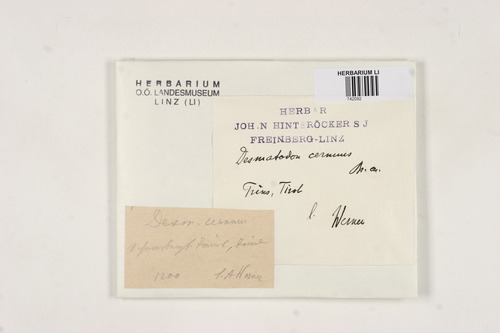 HERBARIUM
O.Ö. LANDESMUSEUM
LINZ (LI)
HERBARIUM LI
742092
HERBAR
JOH.N HINTERÖCKER S J
FREINBERG-LINZ
Desmatodon cernuus
Trins, Tirol
l. Werner
Desm. cernuus
Trins, Tirol
1200 l. A Werner